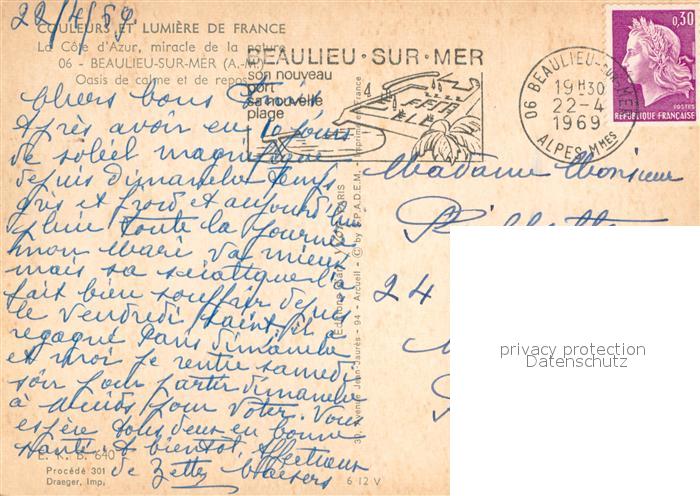 22/4/69
COULEURS ET LUMIÈRE DE FRANCE
La Côte d'Azur, miracle de la nature
06 - BEAULIEU-SUR-MER (A.-M.)
Oasis de calme et de repos
BEAULIEU • SUR • MER
son nouveau
port
sa nouvelle
plage
06 BEAULIEU-SUR-MER
19H30
22-4
1969
ALPES MMES
0,30
POSTES
RÉPUBLIQUE FRANÇAISE
bons
Après avoir eu 10 jours
de soleil magnifique
depuis dimanche temps
gris et froid et aujourd'hui
pluie toute la journée
mon mari va mieux
mais sa sciatique l'a
fait bien souffrir depuis
le vendredi saint, il a
regagné Paris dimanche
et moi je rentre samedi
soir pour partir dimanche
à midi pour voter. Vous
espère tous deux en bonne
santé. A bientôt,
de
Madame Monsieur
24
Editions d'art YVON, PARIS
39, Avenue Jean-Jaurès - 94 - Arcueil - © by S.P.A.D.E.M. - Imprimé en France
privacy protection
Datenschutz
E. K. B. 640
Procédé 301
Draeger, Imp.
6 12 V